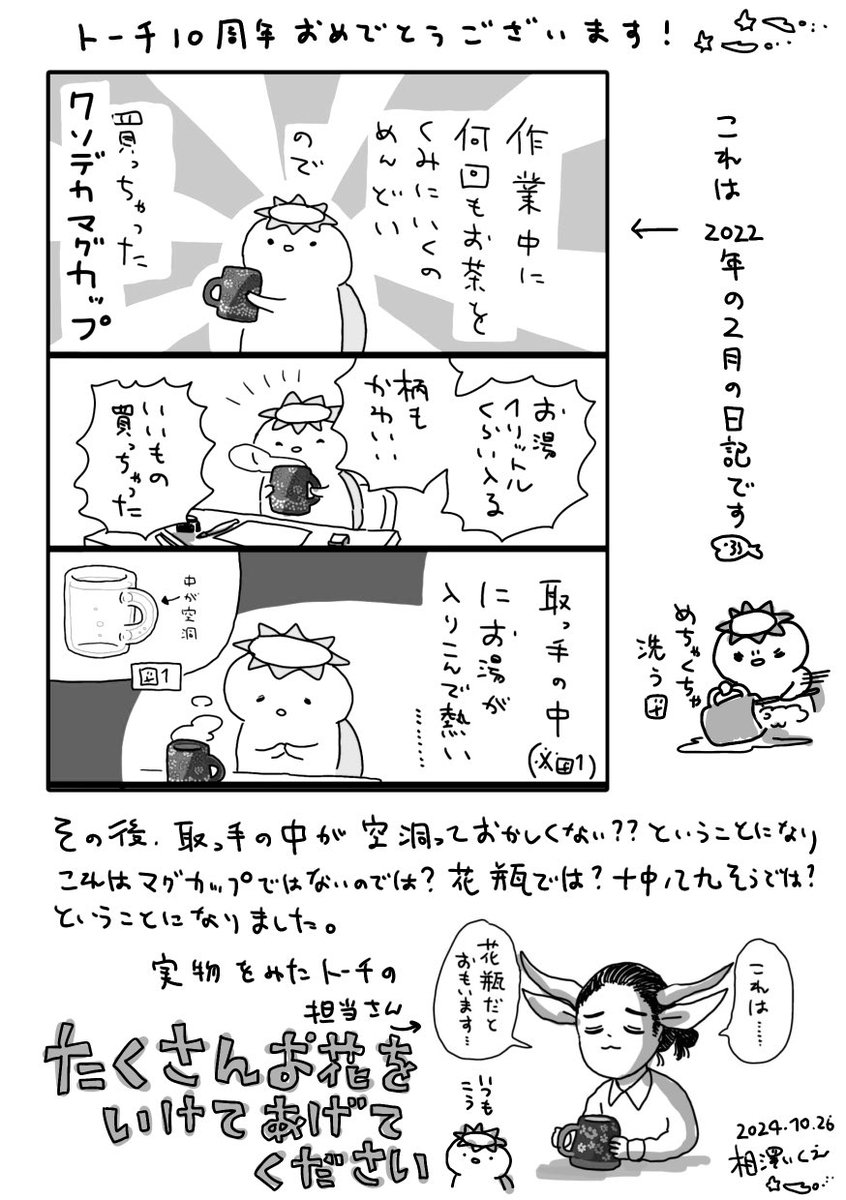 トーチ10周年おめでとうございます!
これは2022年の2月の日記です
作業中に
何回もお茶を
くみにいくの
めんどい
ので
買っちゃった
クソデカマグカップ
お湯
1リットル
くらい入る
柄も
かわいい
いいもの
買っちゃった
取っ手の中
にお湯が
入りこんで熱い
………
(※図1)
中が空洞
図1
めちゃくちゃ
洗う図
その後、取っ手の中が空洞っておかしくない??ということになり
これはマグカップではないのでは?花瓶では?十中八九そうでは?
ということになりました。
実物をみたトーチの
担当さん
これは……
花瓶だと
おもいます…
いつも
こう
たくさんお花を
いけてあげて
ください
2024.10.26
相澤いくえ